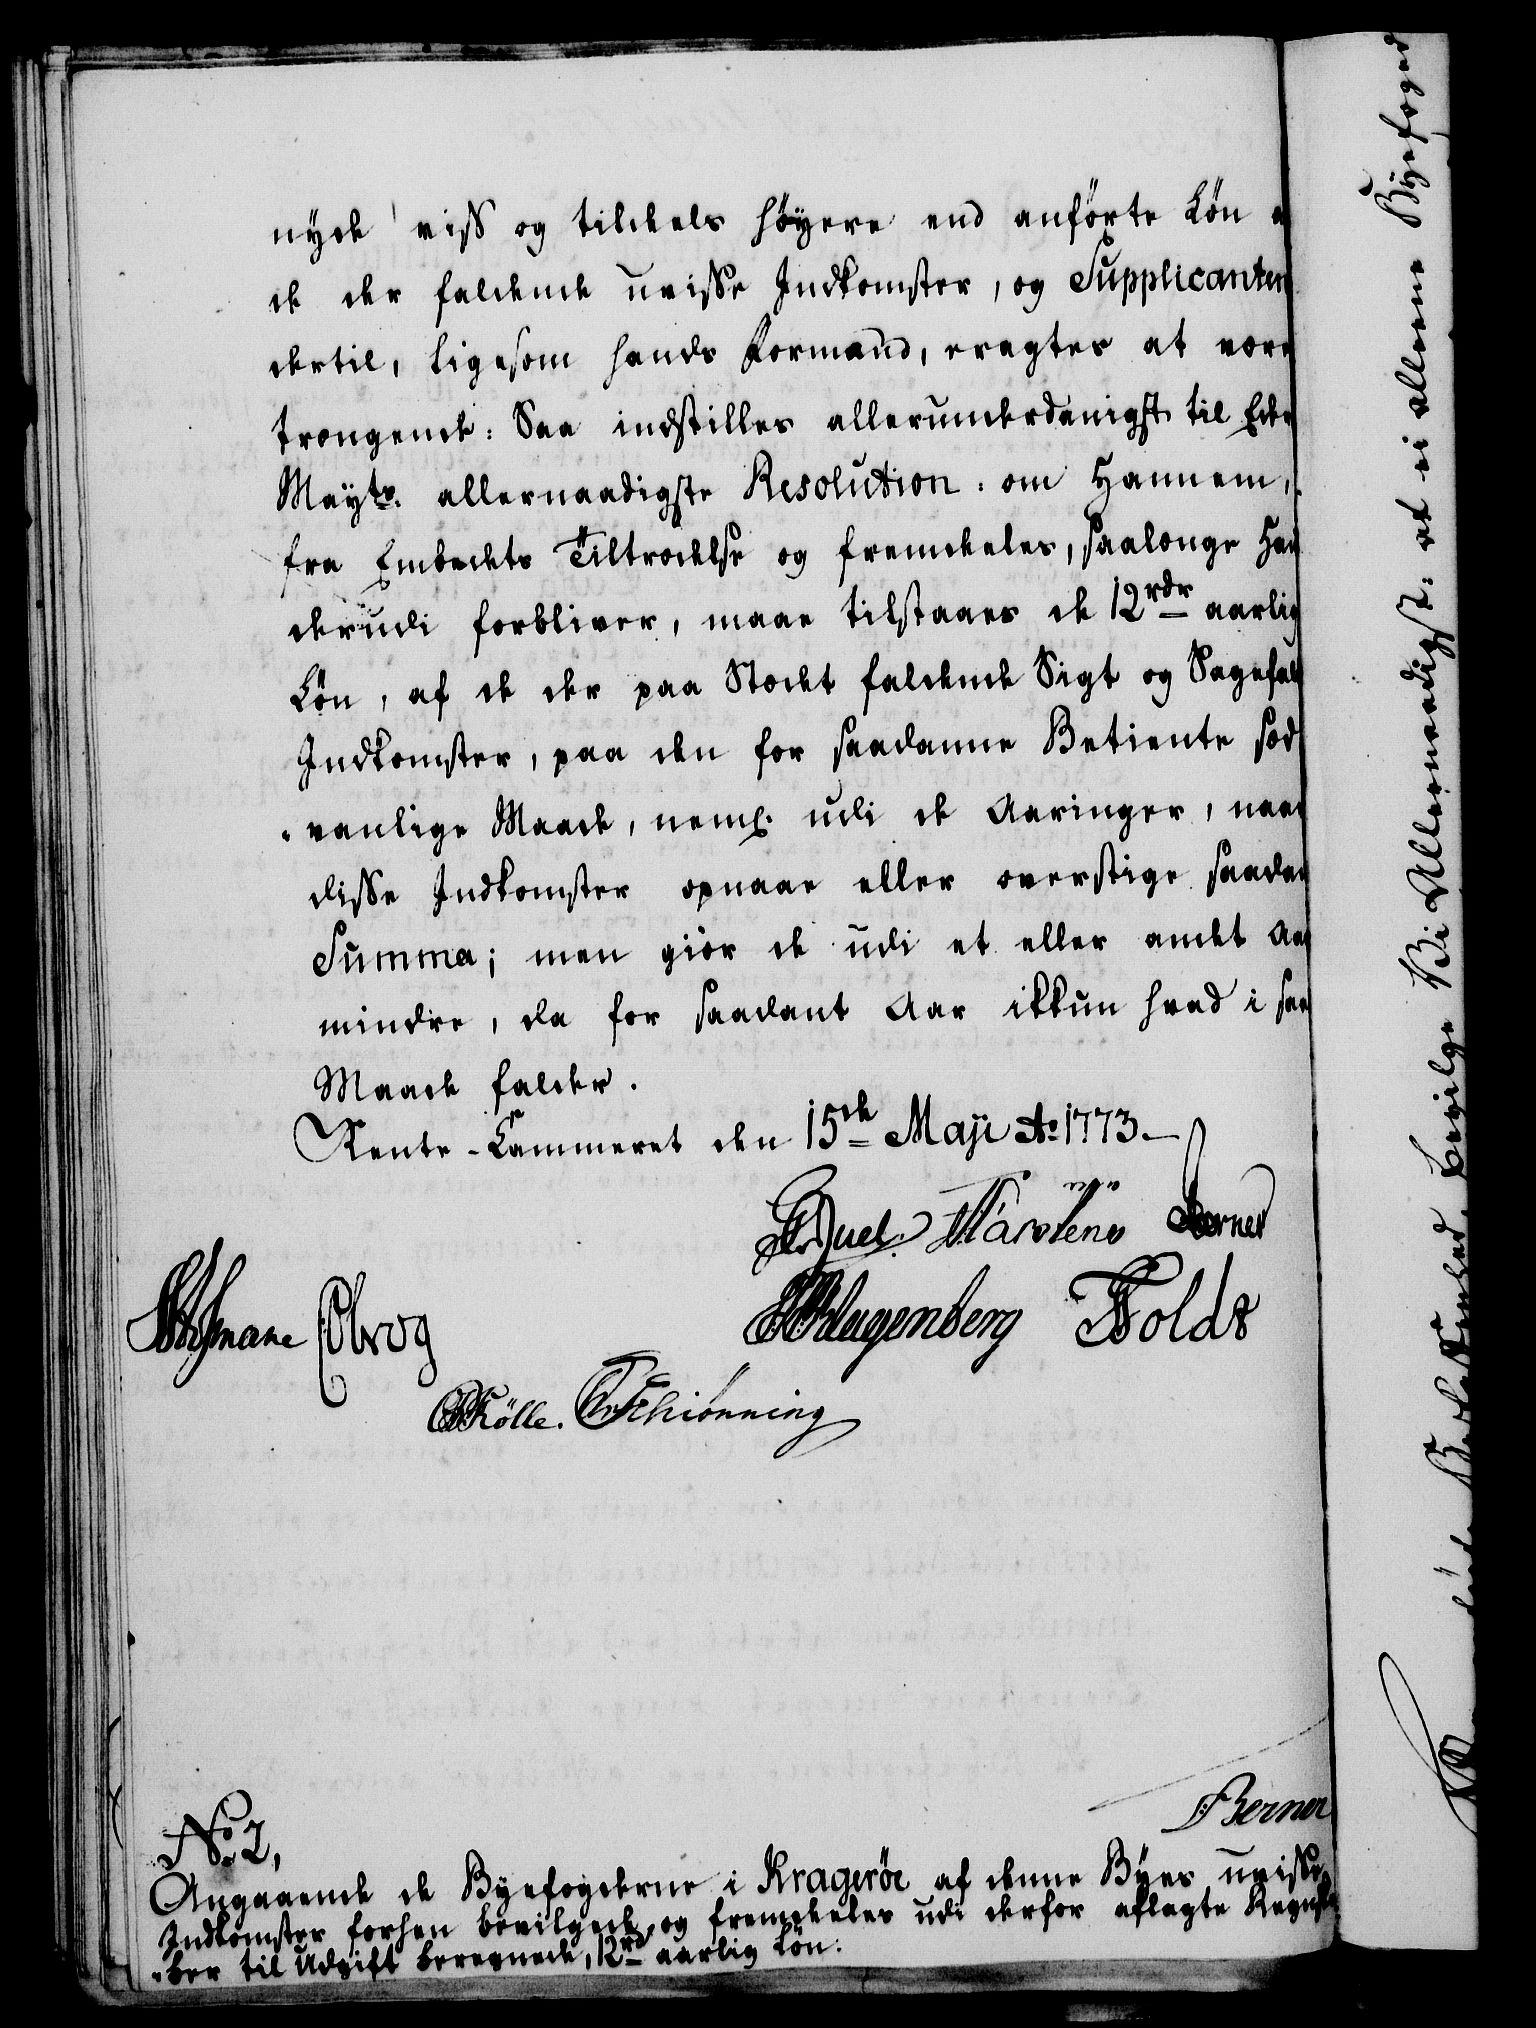 nyde viss og tildeels høyere end anførte Løn
de der faldende uvisse Indkomster, og Supplicanten
dertil, ligesom hands Formand, eragtes at være
trængende: Saa indstilles allerunderdanigst til Eders
Mayts. allernaadigste Resolution: om Hannem,
fra Embedets Tiltrædelse og fremdeeles, saalænge Han
derudi forbliver, maae tilstaaes de 12 rdr aarlig
Løn, af de der paa Stædet faldende Sigt og Sagefalds
Indkomster, paa den for saadanne Betiente sæd-
-vanlige Maade, neml. udi de Aaringer, naar
disse Indkomster opnaae eller overstige saadan
Summa; men giør de udi et eller andet Aar
mindre, da for saadant Aar ikkun hvad i saa
Maade falder.
Rente-Cammeret den 15de Maji Ao 1773.
Juel. Berner
Klugenberg Holdt
Selmane
Schiønning
Berner
No. 2,
Angaaende de Byefogderne i Kragerøe af denne Byes uvisse
Indkomster forhen bevilgede, og fremdeeles udi derfor aflagte Regnska-
-ber til Udgift beregnede, 12 rd aarlig Løn.
Vi Allernaadigst: at ei alleene Byefoged
Bevilge